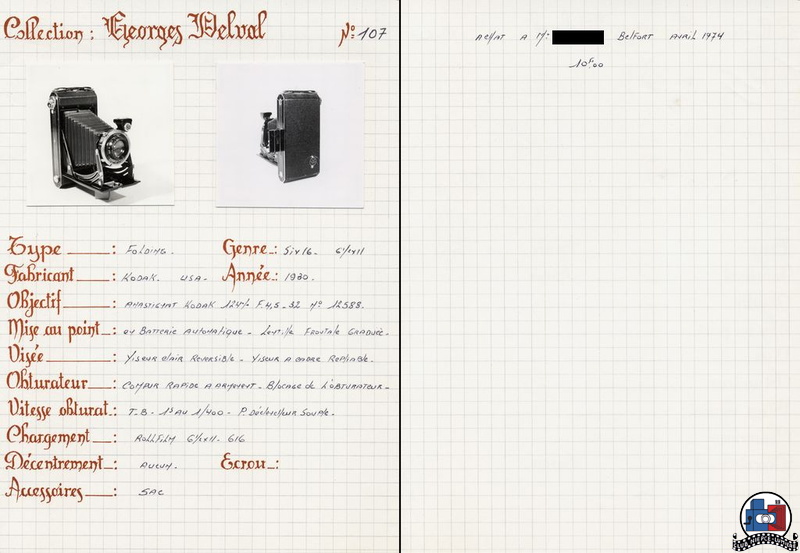 Collection : Georges Delval N°: 107
Type : Folding. Genre : Six16. 6½x11
Fabricant : Kodak. USA. Année : 1930.
Objectif : Anastigmat Kodak 124m/m F.4,5-32 N° 12588.
Mise au point : en Batterie Automatique - Lentille Frontale Graduée.
Visée : Viseur clair Reversible - Viseur a cadre Repliable.
Obturateur : Compur Rapide a armement - Blocage de l'obturateur -
Vitesse obturat : T.B - 1s Au 1/400 - P. Déclencheur Souple.
Chargement : Rollfilm 6½x11. 616
Décentrement : Aucun. Ecrou :
Accessoires : Sac
Achat a Mr: Belfort Avril 1974
10F,00